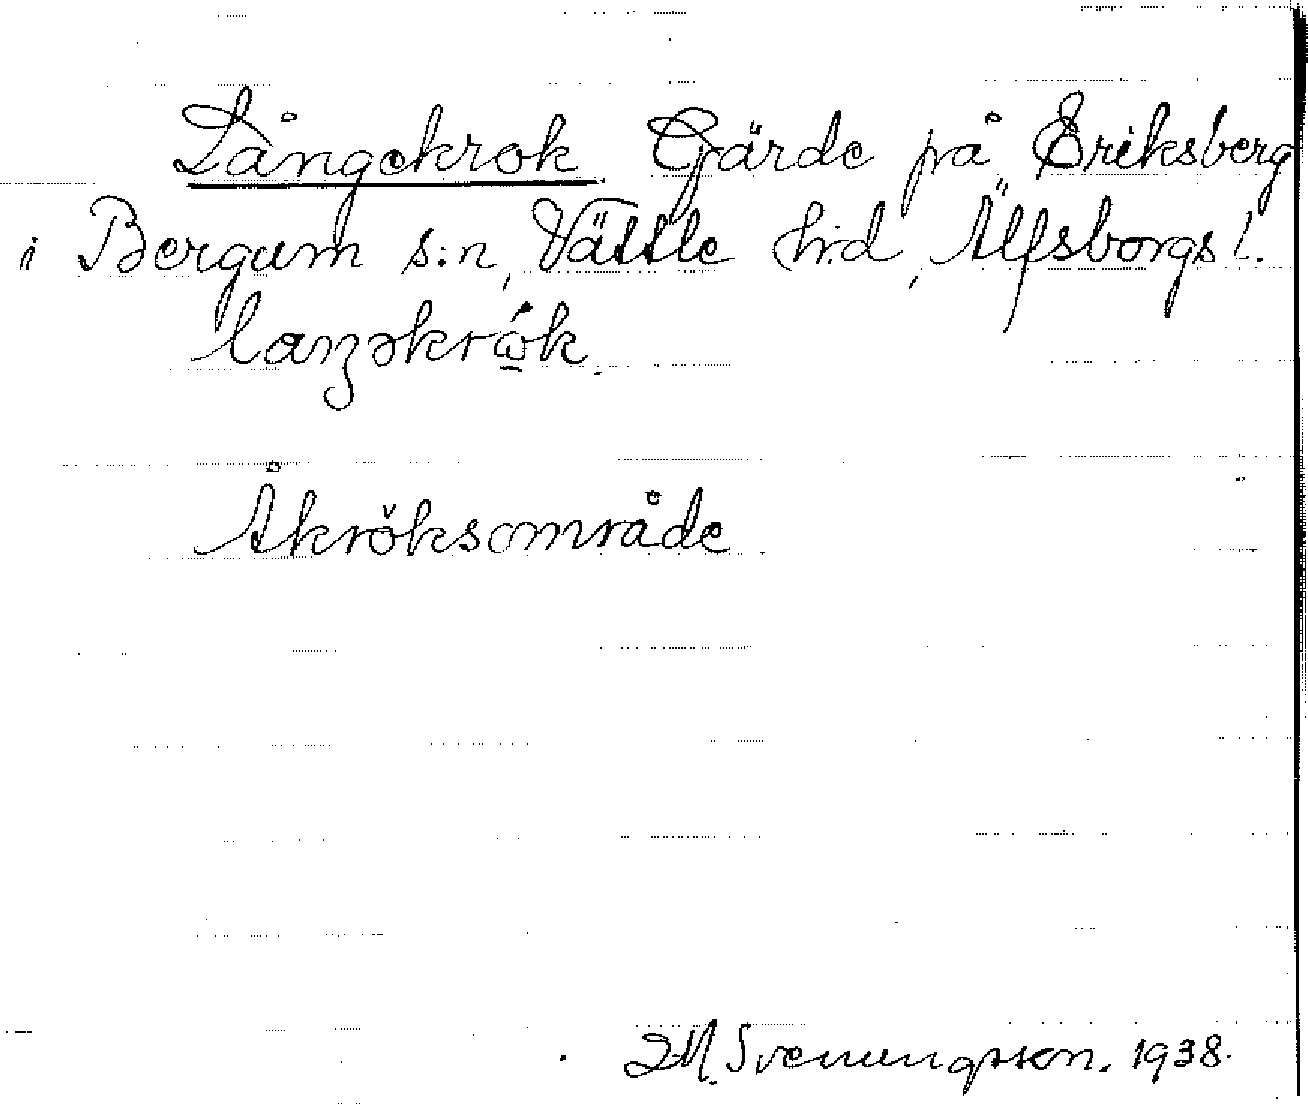 Långekrok Gärde på Eriksberg
i Bergum s:n, Vättle h:d, Älfsborgs l.
Åkröksområde
M. Svenungsson. 1938.